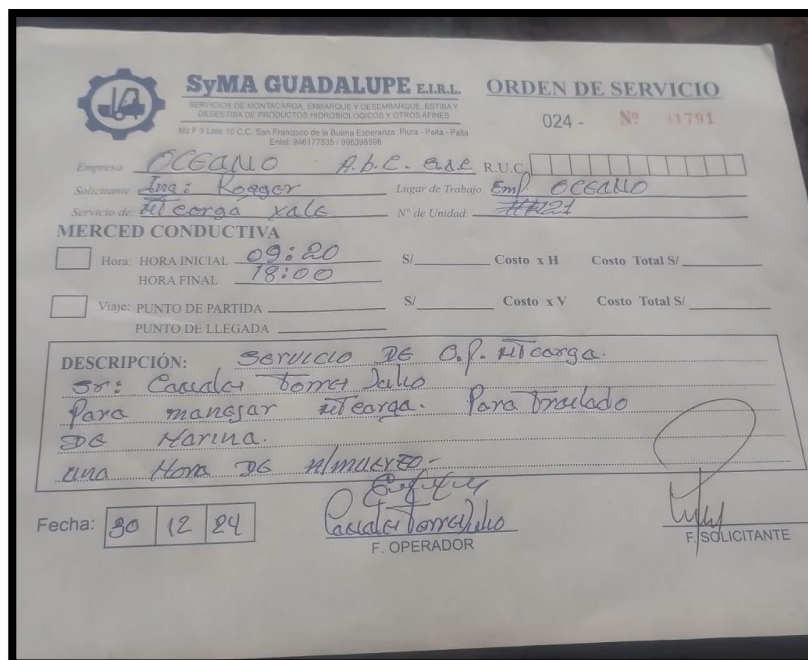 SyMA GUADALUPE E.I.R.L.
SERVICIOS DE MONTACARGA, EMBARQUE Y DESEMBARQUE, ESTIBA Y
DESESTIBA DE PRODUCTOS HIDROBIOLOGICOS Y OTROS AFINES
Mz F 3 Lote 10 C.C. San Francisco de la Buena Esperanza Piura - Paita - Paita
Entel: 946177535 / 998398598
ORDEN DE SERVICIO
024 - Nº 1791
Empresa: OCEANO A.b.C. R.U.C.
Solicitante: Ing: Rogger Lugar de Trabajo: Emp OCEANO
Servicio de: Nº de Unidad:
MERCED CONDUCTIVA
Hora: HORA INICIAL 09:20 S/ Costo x H Costo Total S/
HORA FINAL 18:00
Viaje: PUNTO DE PARTIDA S/ Costo x V Costo Total S/
PUNTO DE LLEGADA
DESCRIPCIÓN: Servicio DE O.P. mtcarga.
Sr: Torres Julio
Para manejar mtcarga. Para Traslado
DE Harina.
una Hora DE
Fecha: 30 12 24
Torres Julio
F. OPERADOR
F. SOLICITANTE